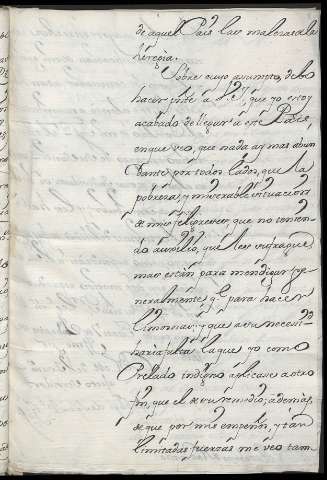 de aquel Pais las malezas de la
heregia.
Sobre cuyo assumpto, debo
hacer pnte a V. que yo estoy
acabado de llegar à este Pais,
en que veo, que nada ay mas abun
dante por todos lados, que la
pobreza, y miserable situacion
de mis feligreses, que no tenien
do auxilio, que les sufrague
mas estàn para mendigar ge
neralmente, q̃ para hacer
limosnas; y que a una necesi
haria falta la que yo como
Prelado indigno aplicase a otro
fin, que el de su remedio; ademàs,
de que por mis empeños, y tan
limitadas fuerzas me veo tam